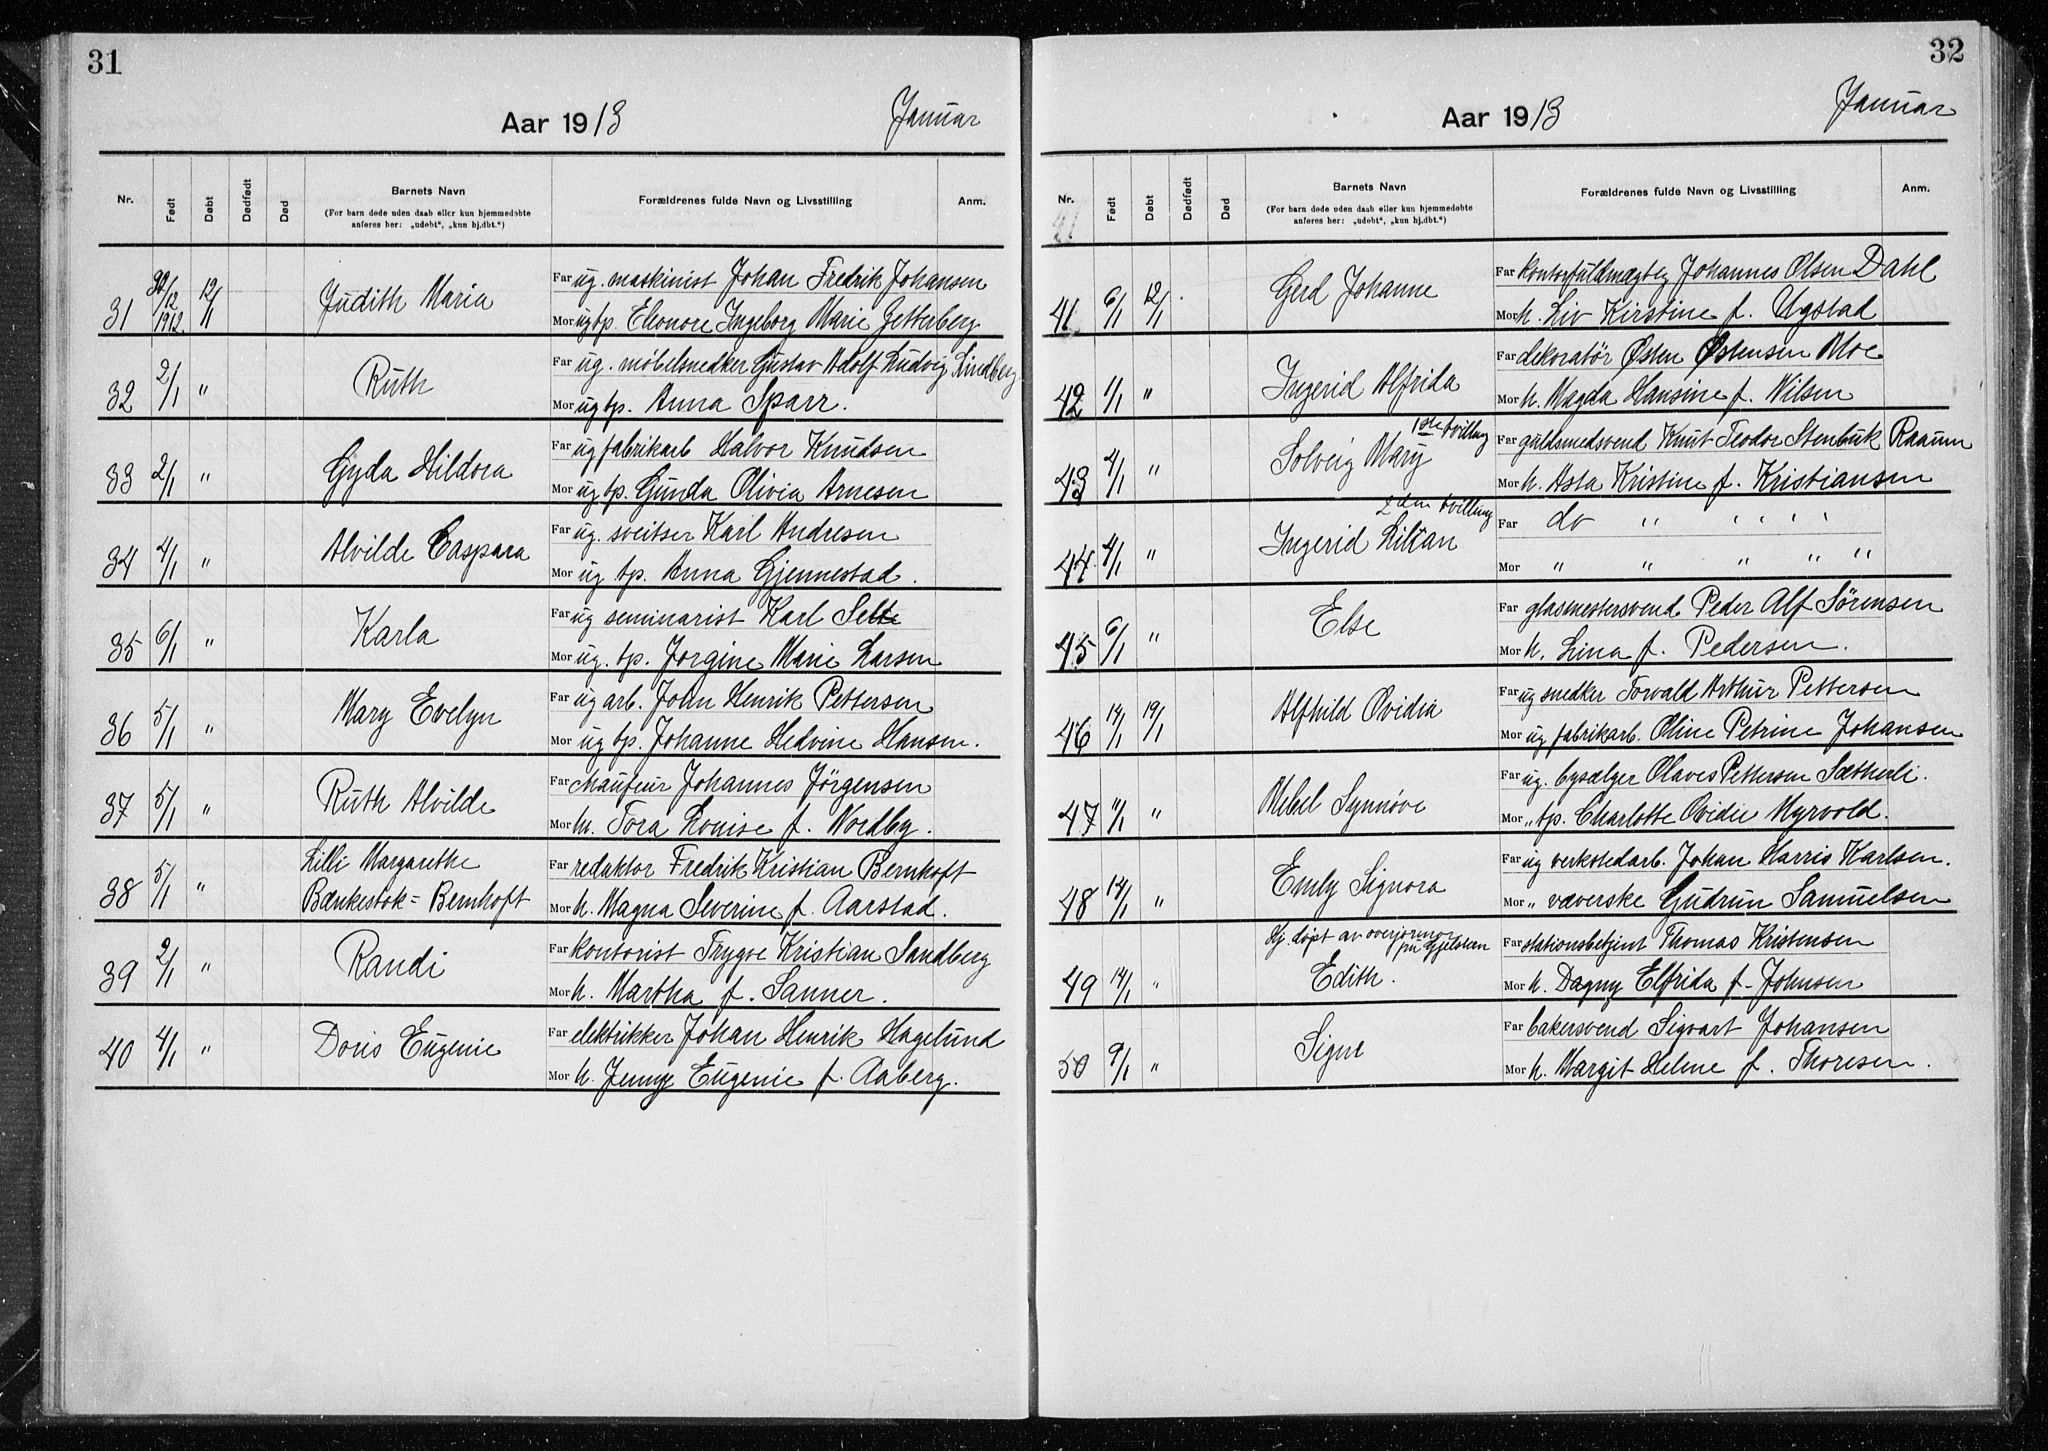 31
Aar 1913 Januar
Nr. Født Døbt Dødfødt Død Barnets Navn Forældrenes fulde Navn og Livsstilling Anm.
(For barn døde uden daab eller kun hjemmedøbte
anføres her: „udøbt“, „kun hj.dbt.“)
31 30/12 1912. 12/1 Judith Maria Far ug. maskinist Johan Fredrik Johansen
Mor ug tp. Elenore Ingeborg Marie Getterberg
32 2/1 " Ruth Far ug. møbelsnedker Gustav Adolf Ludvig Lindberg
Mor ug tp. Anna Sparr.
33 2/1 " Gyda Hildora Far ug fabrikarb Halvor Knudsen
Mor ug tp. Gunda Olivia Arnesen
34 4/1 " Alvilde Caspara Far ug. sveitser Karl Andresen
Mor ug tp. Anna Gjennestad.
35 6/1 " Karla Far ug seminarist Karl Selte
Mor ug. tp. Jorgine Marie Larsen
36 5/1 " Mary Evelyn Far ug arb. John Henrik Pettersen
Mor ug tp. Johanne Hedvine Hansen.
37 5/1 " Ruth Alvilde Far chaufeur Johannes Jörgensen
Mor h. Tora Louise f. Nordby.
38 5/1 " Lilli Margarethe Far redaktør Fredrik Kristian Bernhoft
Bænkestok = Bernhoft Mor h. Magna Severine f. Aarstad.
39 2/1 " Randi Far kontorist Trygve Kristian Sandberg
Mor h. Martha f. Sanner.
40 4/1 " Doris Eugenie Far elektrikker Johan Henrik Hagelund
Mor h. Jenny Eugenie f. Aaberg.
32
Aar 1913 Januar
Nr. Født Døbt Dødfødt Død Barnets Navn Forældrenes fulde Navn og Livsstilling Anm.
(For barn døde uden daab eller kun hjemmedøbte
anføres her: „udøbt“, „kun hj.dbt.“)
41
41 6/1 12/1 Gerd Johanne Far kontorfuldmægtig Johannes Olsen Dahl
Mor h. Liv Kirstine f. Ugstad
42 1/1 " Ingerid Alfrida Far dekoratör Østen Østensen Moe
Mor h. Magda Hansine f. Nilsen
1ste tvilling
43 4/1 " Solveig Mary Far guldsmedsvend Knut Teodor Stenbuk Raaum
Mor h. Asta Kristine f. Kristiansen
2den tvilling
44 4/1 " Ingerid Lilian Far do " " " " "
Mor " " " " "
45 6/1 " Else Far glasmestersvend Peder Alf Sörensen
Mor h. Lina f. Pedersen.
46 14/1 19/1 Alfhild Ovidia Far ug snedker Torvald Arthur Pettersen
Mor ug fabrikarb. Oline Petrine Johansen
47 11/1 " Mebel Synnöve Far ug. bysælger Olaves Pettersen Sætherli.
Mor " tp. Charlotte Ovidie Myrvold.
48 12/1 " Emly Signora Far ug verkstedarb. Johan Harris Karlsen.
Mor " væverske Gudrun Samuelsen
Hj. døpt av overjormor
49 14/1 " Edith. Far stationsbetjent Thomas Kristensen
Mor h. Dagny Elfrida f. Johnsen
50 9/1 " Signe Far bakersvend Sigvart Johansen
Mor h. Margit Helene f. Thoresen.